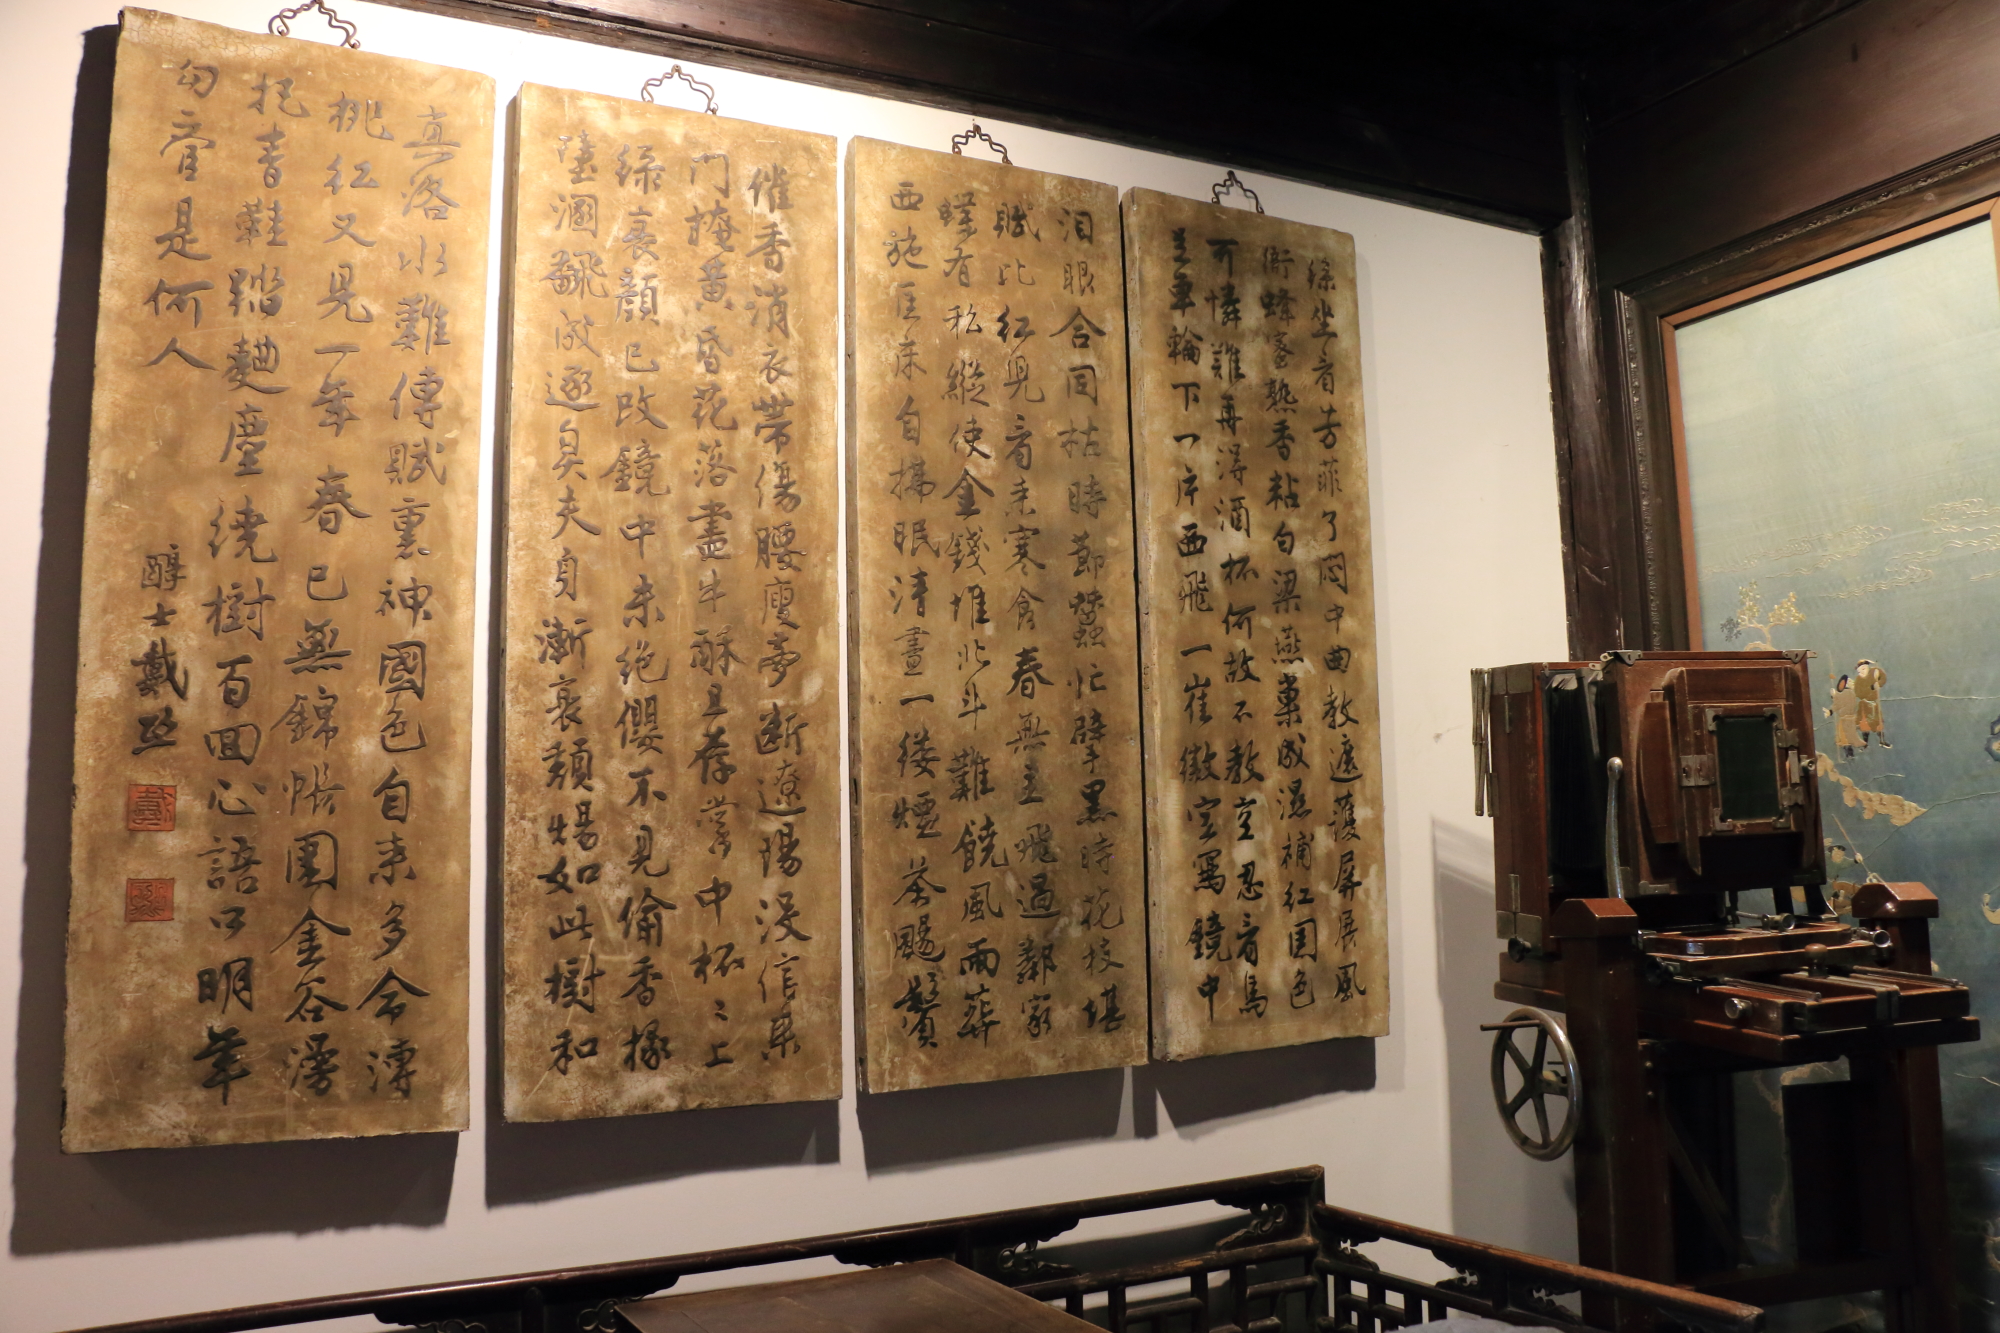 綵坐看芳菲了悶中曲教遮護屏展風
衙蜂蜜熟香粘白梁燕巢成濕補紅國色
可憐難再得酒杯何故不教空忍看馬
足車輪下一片西飛一崔徽空寫鏡中
淚眼合同枯時節蠶忙擘黑時花枝堪
賦比紅兒看來寒食春無主飛過鄰家
蝶有私縱使金錢堆北斗難饒風雨葬
西施匡床自掃眠清晝一縷煙茶颺鬢
催香消衣帶傷腰瘦夢斷遼陽沒信來
門掩黃昏花落盡牛酥且薦掌中杯〻上
綠衰顏已改鏡中朱絕纓不見偷香掾
墮溷翻成逐臭夫身漸衰頹如此樹和
真洛水難傳賦裏神國色自來多命薄
桃紅又見一年春已無錦帳圍金谷漫
把青鞋踏麴塵繞樹百回心語口明年
勾管是何人
醇士戴熙